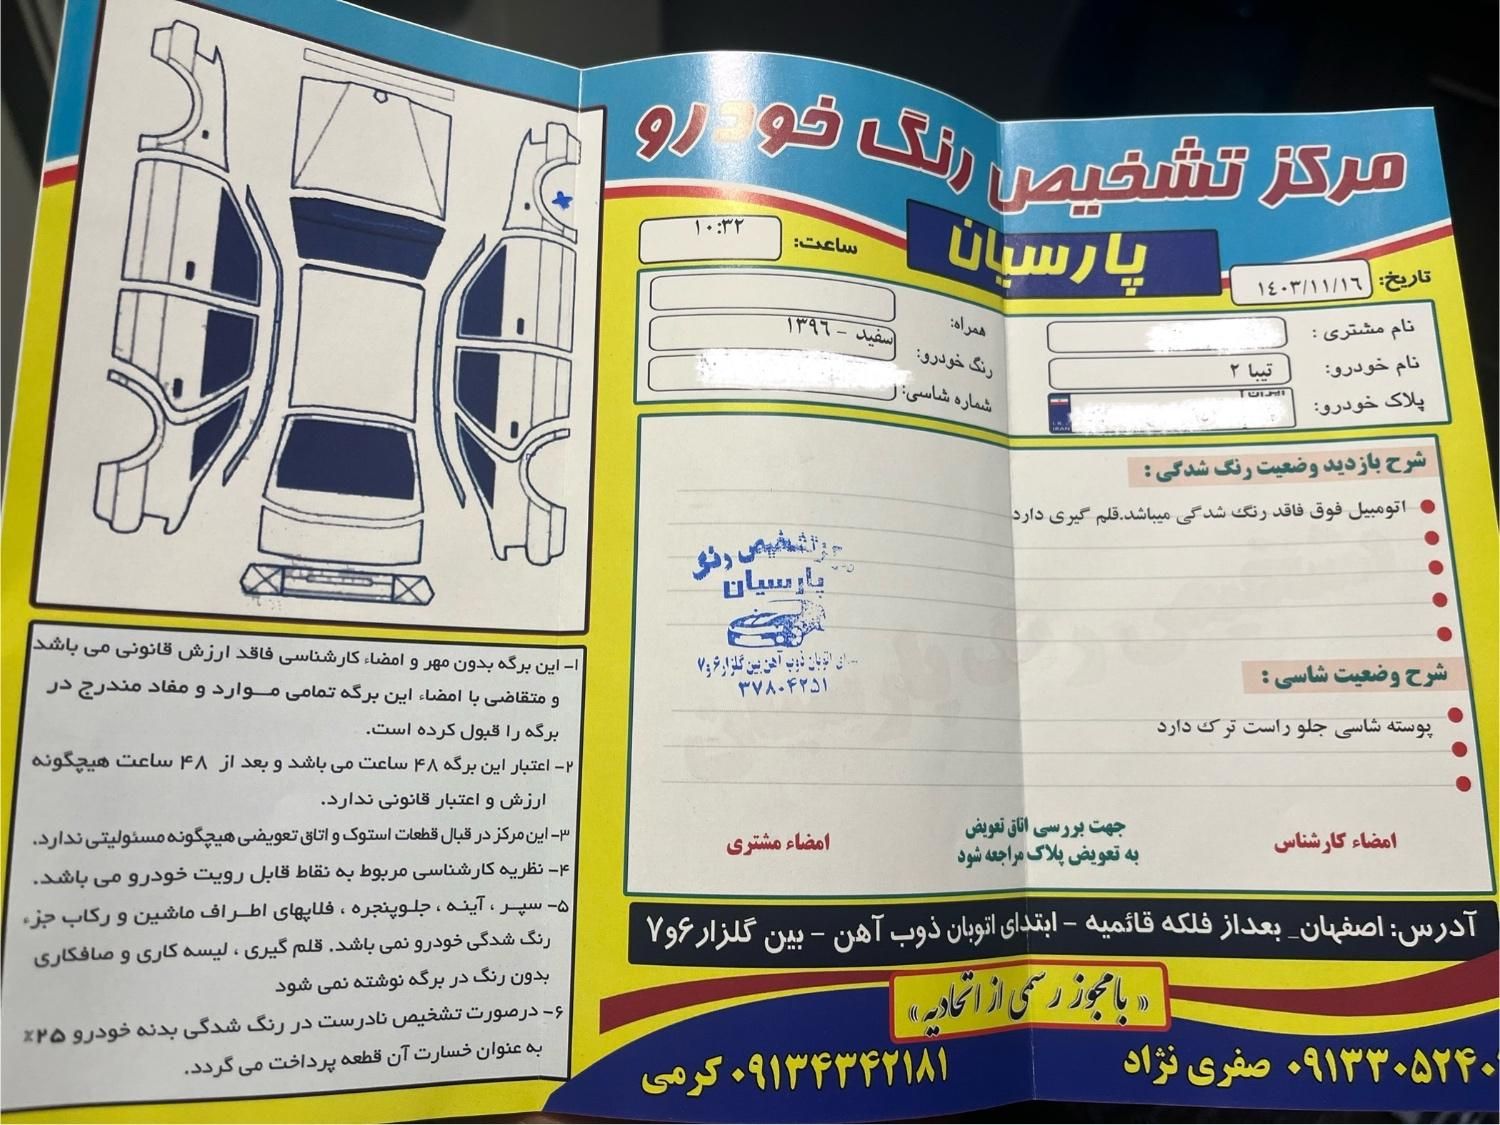 مرکز تشخیص رنگ خودرو
پارسیان
تاریخ: ۱۴۰۳/۱۱/۱۶
ساعت: ۱۰:۳۲
نام مشتری :
نام خودرو: تیبا ۲
پلاک خودرو:
I.R.
IRAN
همراه:
رنگ خودرو: سفید - ۱۳۹۶
شماره شاسی:
شرح بازدید وضعیت رنگ شدگی :
اتومبیل فوق فاقد رنگ شدگی میباشد.قلم گیری دارد
شرح وضعیت شاسی :
پوسته شاسی جلو راست ترک دارد
تشخیص
پارسیان
اتوبان ذوب آهن بین گلزار ۶و۷
۳۷۸۰۴۲۵۱
امضاء کارشناس
جهت بررسی اتاق تعویض
به تعویض پلاک مراجعه شود
امضاء مشتری
آدرس: اصفهان_ بعداز فلکه قائمیه - ابتدای اتوبان ذوب آهن - بین گلزار ۶و۷
« با مجوز رسمی از اتحادیه »
صفری نژاد
۰۹۱۳۴۳۴۲۱۸۱ کرمی
۱- این برگه بدون مهر و امضاء کارشناسی فاقد ارزش قانونی می باشد
و متقاضی با امضاء این برگه تمامی مـوارد و مفاد مندرج در
برگه را قبول کرده است.
۲- اعتبار این برگه ۴۸ ساعت می باشد و بعد از ۴۸ ساعت هیچگونه
ارزش و اعتبار قانونی ندارد.
۳- این مرکز در قبال قطعات استوک و اتاق تعویضی هیچگونه مسئولیتی ندارد.
۴- نظریه کارشناسی مربوط به نقاط قابل رویت خودرو می باشد.
۵- سپر ، آینه ، جلوپنجره ، فلاپهای اطراف ماشین و رکاب جزء
رنگ شدگی خودرو نمی باشد. قلم گیری ، لیسه کاری و صافکاری
بدون رنگ در برگه نوشته نمی شود
۶- درصورت تشخیص نادرست در رنگ شدگی بدنه خودرو ۲۵٪
به عنوان خسارت آن قطعه پرداخت می گردد.